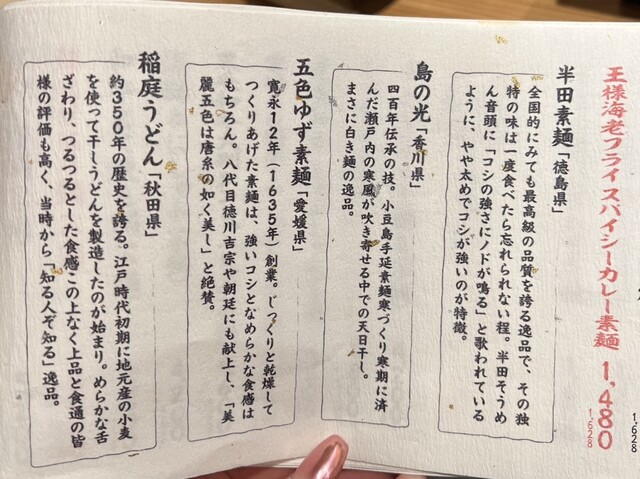 王様海老フライスパイシーカレー素麺 1,480
1,628
1,628
半田素麺「徳島県」
全国的にみても最高級の品質を誇る逸品で、その独
特の味は一度食べたら忘れられない程。半田そうめ
ん音頭に「コシの強さにノドが鳴る」と歌われている
ように、やや太めでコシが強いのが特徴。
島の光「香川県」
四百年伝承の技。小豆島手延素麺寒づくり寒期に済
んだ瀬戸内の寒風が吹き寄せる中での天日干し。
まさに白き麺の逸品。
五色ゆず素麺「愛媛県」
寛永12年(1635年)創業。じっくりと乾燥して
つくりあげた素麺は、強いコシとなめらかな食感は
もちろん。八代目徳川吉宗や朝廷にも献上し、「美
麗五色は唐糸の如く美し」と絶賛。
稲庭うどん「秋田県」
約350年の歴史を誇る。江戸時代初期に地元産の小麦
を使って干しうどんを製造したのが始まり。めらかな舌
ざわり、つるつるとした食感この上なく上品と食通の皆
様の評価も高く、当時から「知る人ぞ知る」逸品。